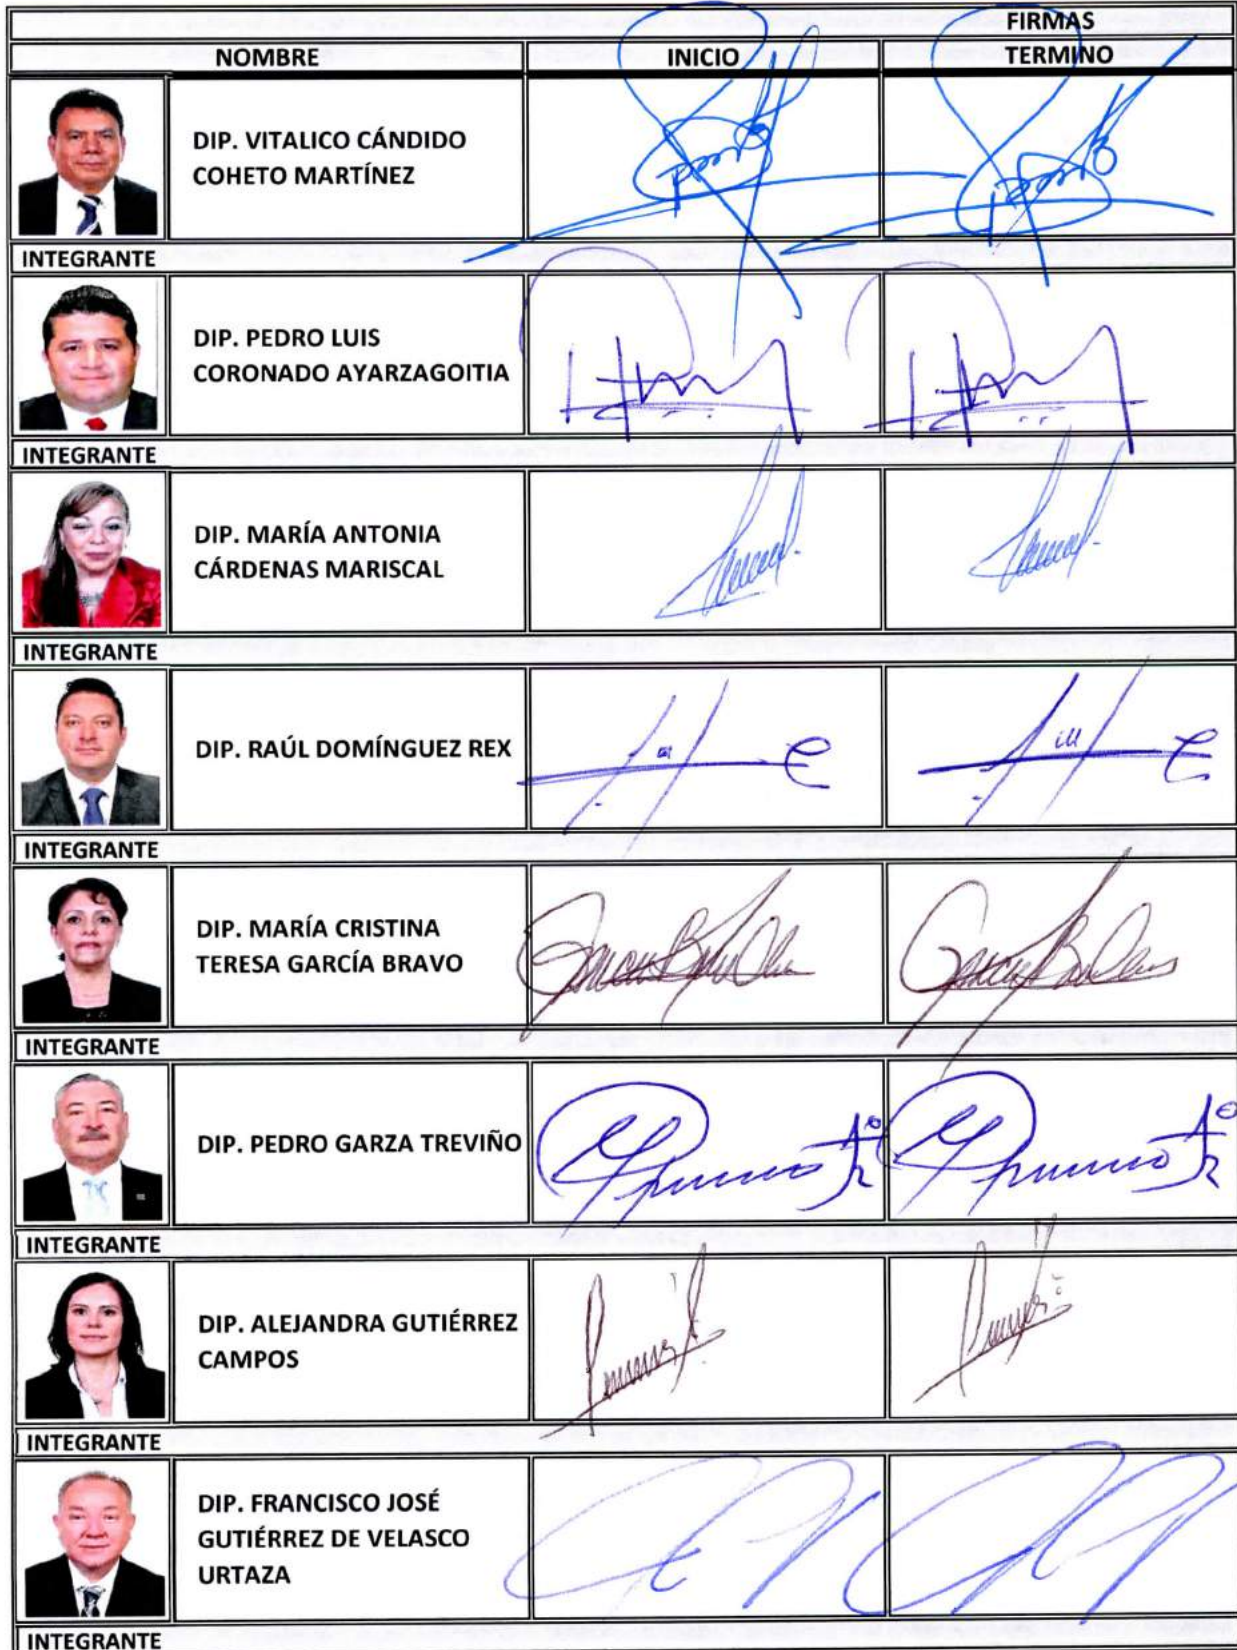 FIRMAS
NOMBRE INICIO TERMINO
DIP. VITALICO CÁNDIDO
COHETO MARTÍNEZ
INTEGRANTE
DIP. PEDRO LUIS
CORONADO AYARZAGOITIA
INTEGRANTE
DIP. MARÍA ANTONIA
CÁRDENAS MARISCAL
INTEGRANTE
DIP. RAÚL DOMÍNGUEZ REX
INTEGRANTE
DIP. MARÍA CRISTINA
TERESA GARCÍA BRAVO
INTEGRANTE
DIP. PEDRO GARZA TREVIÑO
INTEGRANTE
DIP. ALEJANDRA GUTIÉRREZ
CAMPOS
INTEGRANTE
DIP. FRANCISCO JOSÉ
GUTIÉRREZ DE VELASCO
URTAZA
INTEGRANTE